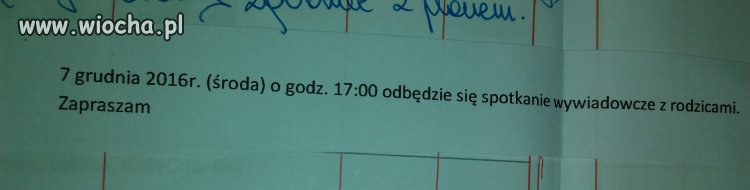 www.wiocha.pl
z planem.
7 grudnia 2016r. (środa) o godz. 17:00 odbędzie się spotkanie wywiadowcze z rodzicami.
Zapraszam